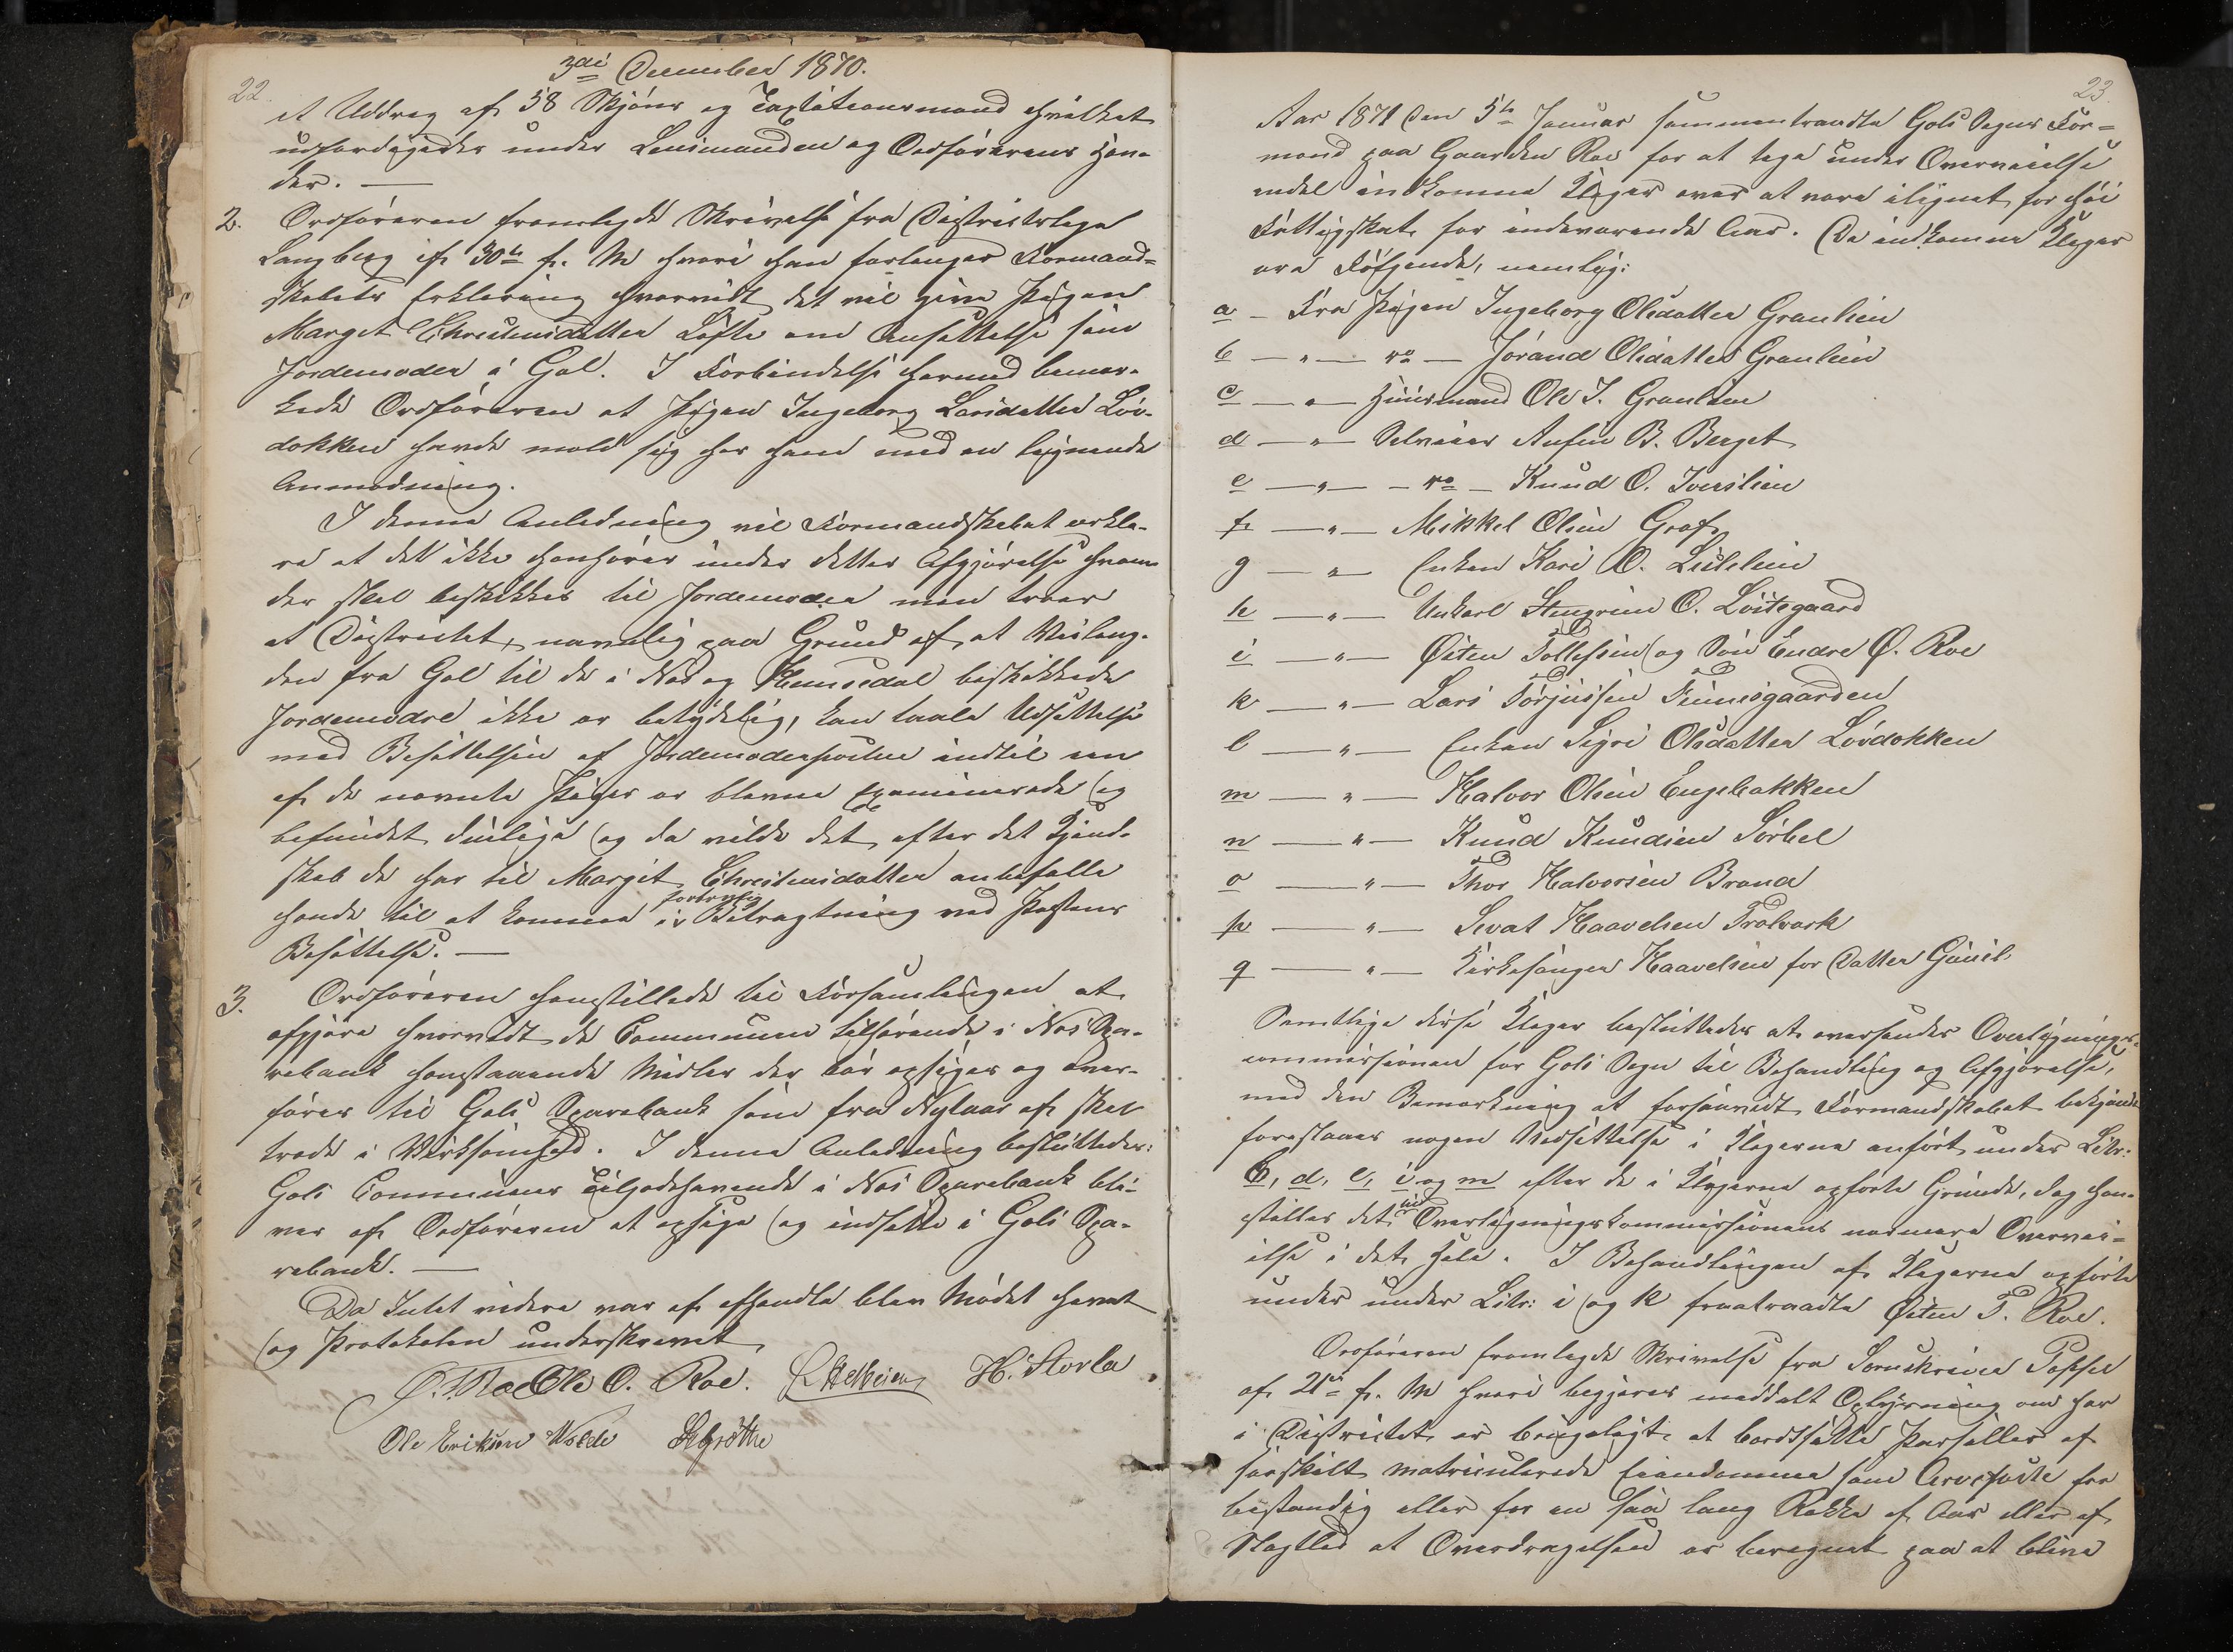 22.
3die December 1870.
et Uddrag af 58 Skjöns og Taxtationsmænd hvilket
udfærdigedes under Lensmanden og Ordförerens Hæn-
der. —
2. Ordföreren fremlagde Skrivelse fra Districtslæge
Langberg af 30te f. M hvori han forlanger Formand-
skabets Erklæring hvorvidt det vil give Pigen
Marget Christensdatter Löfte om Ansættelse som
Jordemoder i Gol. I Forbindelse hermed bemær-
kede Ordföreren at Pigen Ingeborg Larsdatter Löv-
dokken havde meldt sig hos ham med en lignende
Anmodning.
I denne Anledning vil Formandskabet erklæ-
re at det ikke henhörer under dettes Afgjörelse hvem
der skal beskikkes til Jordemoder men troer
at Districtet, navnlig paa Grund af at Veilæng-
den fra Gol til de i Næs og Hemsedal beskikkede
Jordemödre ikke er betydelig, kan taale Udsættelse
med Besættelsen af Jordemoderposten indtil een
af de nævnte Piger er blevne examinerede og
befundet duelige og da vilde det efter det Kjend-
skab de har til Margit Christensdatter anbefalle
hende til at komme i fortrinlig Betragtning ved Postens
Besættelse. —
3. Ordföreren henstillede til Forsamlingen at
afgjöre hvorvidt de Communen tilhörende i Næs Spa-
rebank henstaaende Midler der bör opsiges og over-
föres til Gols Sparebank som fra Nytaar af skal
træde i Virksomhed. I denne Anledning besluttedes:
Gols Communes Tilgodehavende i Næs Sparebank bli-
ver af Ordföreren at opsige og indsætte i Gols Spa-
rebank. —
Da Intet videre var at afhandle blev Mödet hævet
og Protokolen underskrevet
Ole O. Roe. H. Storla
Ole Eriksen
23.
Aar 1871 den 5te Januar sammentraadte Gols Sogns For-
mænd paa Gaarden Roe for at tage under Overveielse
endel indkomne Klager over at være ilignet for höi
Fattigskat for indeværende Aar. De indkomne Klager
ere Fölgende, nemlig:
a – Fra Pigen Ingeborg Olsdatter Granlien
b – " – do – Jörand Olsdatter Granlien
c – " – Huusmand Ole I. Granlien
d – " – Selveier Anfin B. Berget
e – " – do – Knud O. Iverslien
f – " – Mikkel Olsen Grøf
g – " – Enken Kari O.
h – " – Unkarl Stengrim O. Löstegaard
i – " – Østen Tollefsen og Sön Endre Ø. Roe
k – " – Lars Torjussen Finnesgaarden
l – " – Enken Sigri Olsdatter Lövdokken
m – " – Halvor Olsen Engebakken
n – " – Knud Knudsen Sörbel
o – " – Thor Halvorsen Brenna
p – " – Sevat Haavelsen Trolvark
q – " – Kirkesanger Haavelsen for Datter Guuil.
Samtlige disse Klager besluttedes at oversendes Overligningsc-
ommissionen for Gols Sogn til Behandling og Afgjörelse,
med den Bemærkning at forsaavidt Formandskabet bekjendt
foreslaaes nogen Nedsættelse i Klagerne anfört under Litr:
b, d, e, i og m efter de i Klagerne opförte Grunde, dog hen-
stilles det til Overligningskommissionens nærmere Overvei-
else i det Hele. I Behandlingen af Klagerne opförte
under under Litr: i og k fratraadte Østen T. Roe.
Ordföreren fremlagde Skrivelse fra Sorenskriver
af 21de f. M hvori begjæres meddelt Oplysning om her
i Districtet er brugeligt at bortsætte Parseller af
særskilt matriculerede Eiendomme som Arvefæste for
bestandig eller for en saa lang Række af Aar eller af
Slægtled at Overdragelsen er beregnet paa at blive